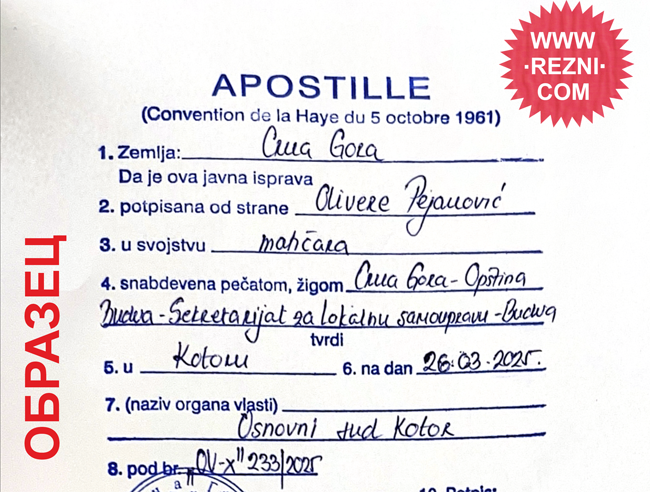 WWW
·REZNI·
COM
APOSTILLE
(Convention de la Haye du 5 octobre 1961)
1. Zemlja: Crna Gora
Da je ova javna isprava
2. potpisana od strane Olivere Pejanović
3. u svojstvu matičara
4. snabdevena pečatom, žigom Crna Gora - Opština
Budva - Sekretarijat za lokalnu samoupravu - Budva
tvrdi
5. u Kotoru 6. na dan 26.03.2025.
7. (naziv organa vlasti)
Osnovni sud Kotor
8. pod br. OV-X" 233/2025
ОБРАЗЕЦ